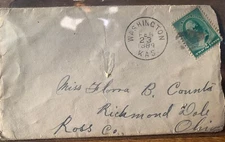 WASHINGTON
FEB
23
KAS.
Miss Flora B. Counts
Richmond Dale
Ross Co. Ohio